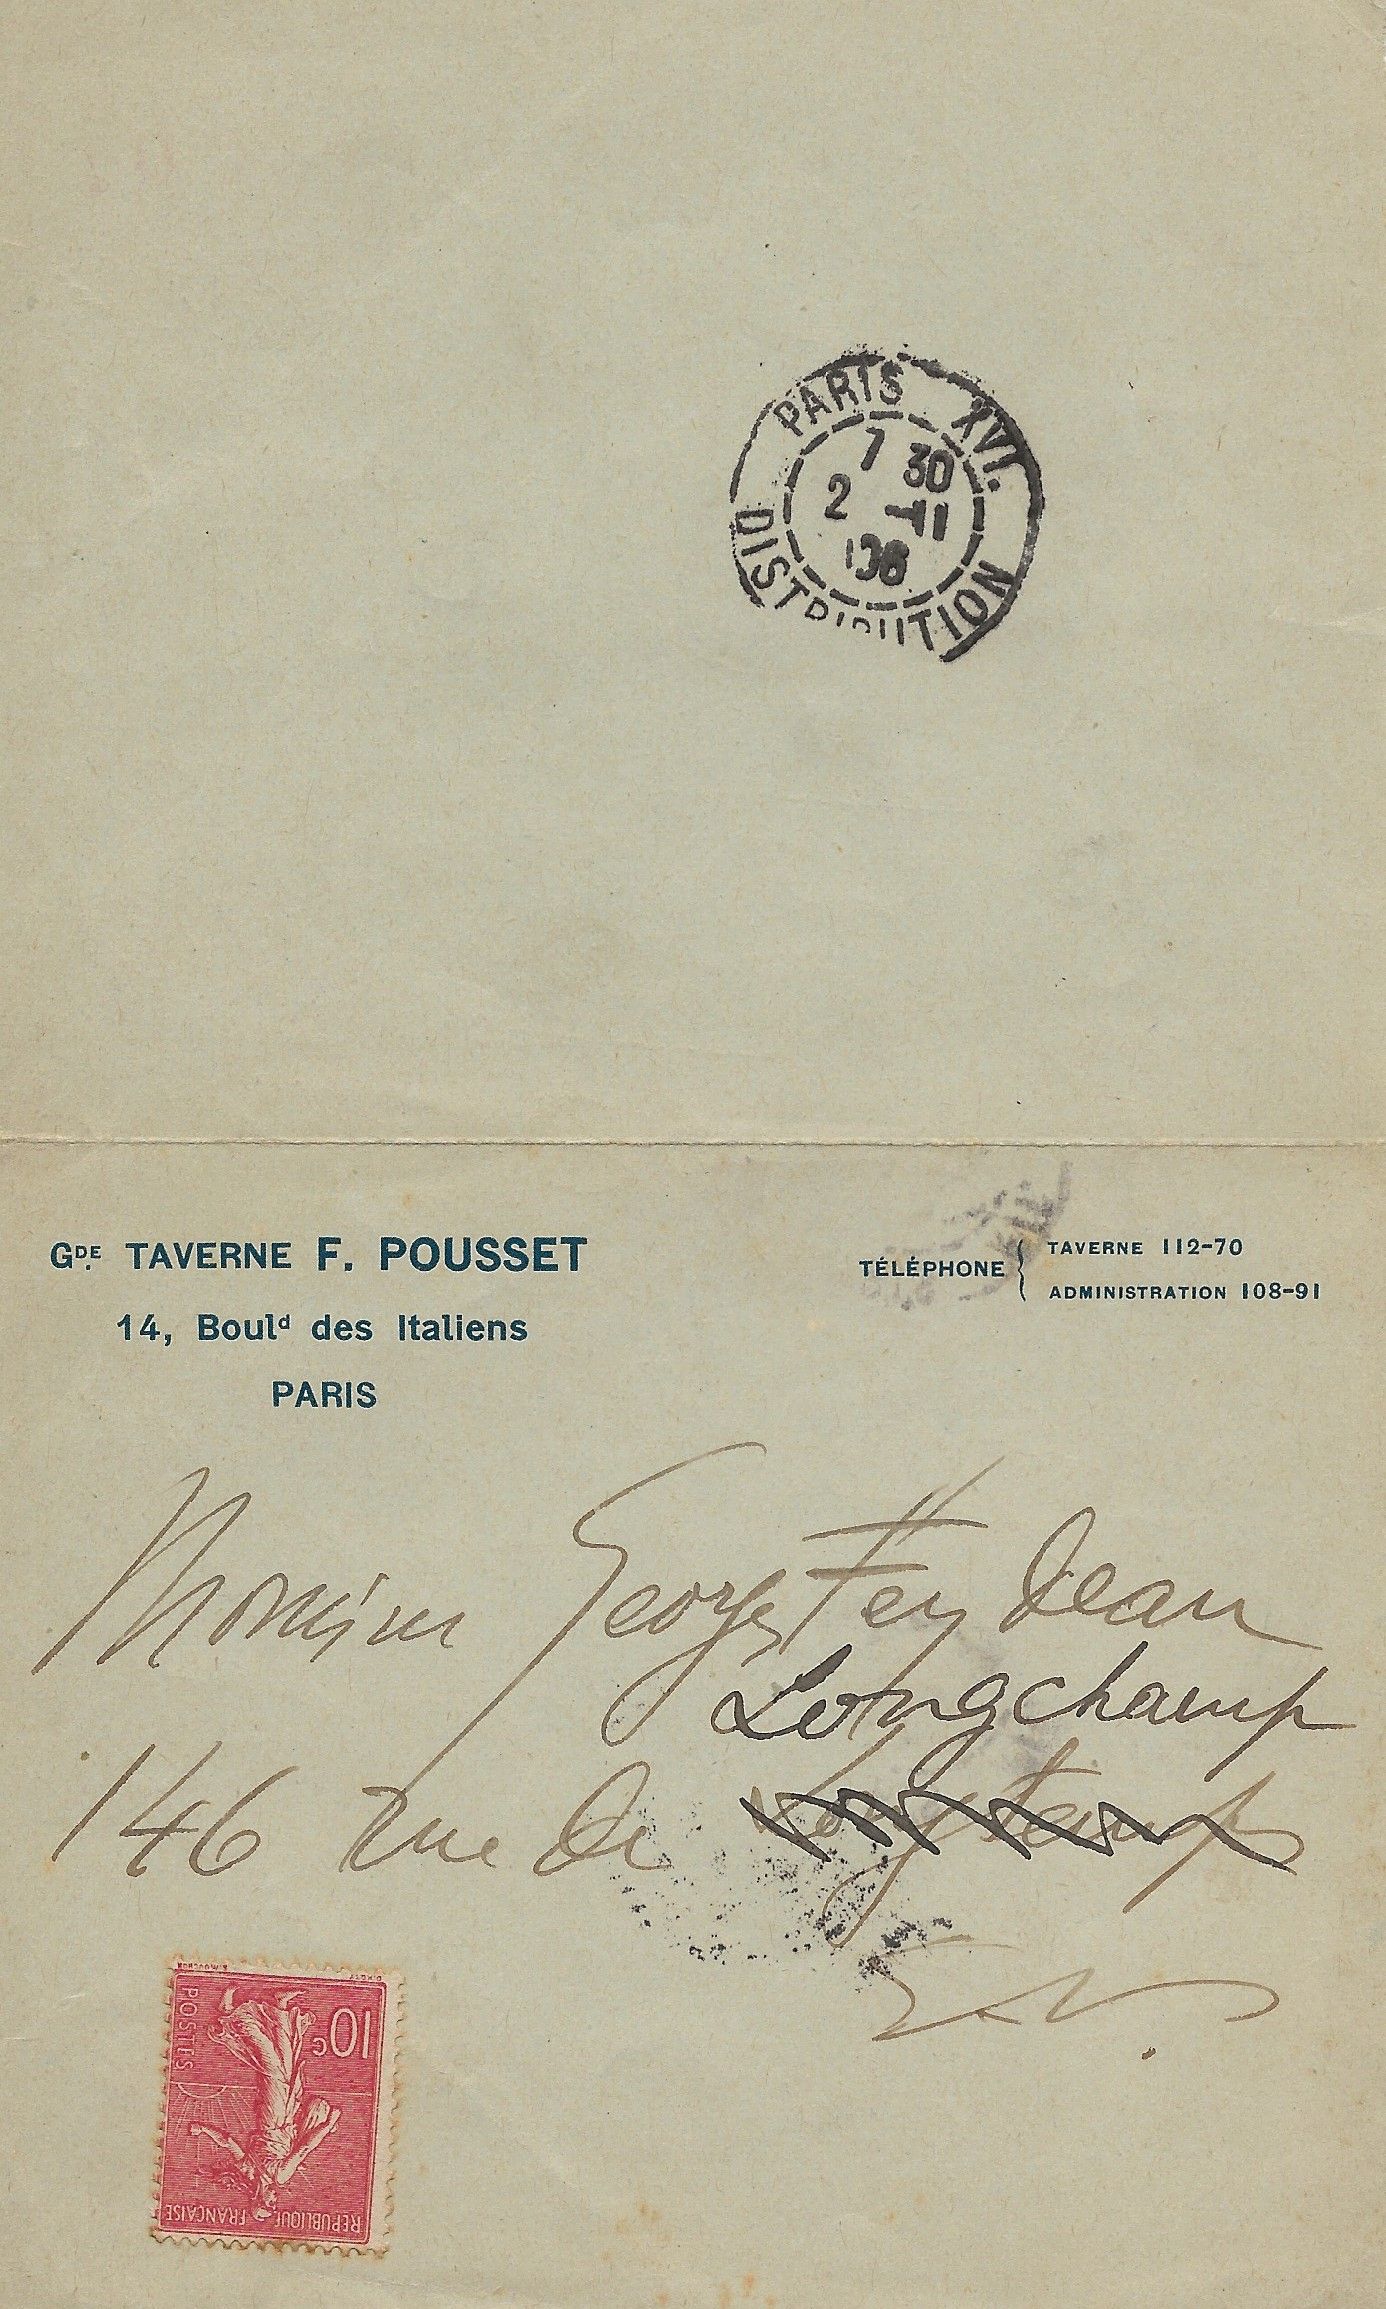 PARIS XVI.
7 30
2 -11
06
DISTRIBUTION
Gᴰᴱ. TAVERNE F. POUSSET
14, Boulᵈ des Italiens
PARIS
TÉLÉPHONE { TAVERNE 112-70
ADMINISTRATION 108-91
Monsieur Georges Feydeau
Longchamp
146 rue de Longtemps
E. V.
E. MOUCHON
O. ROTY
POSTES
10 c
REPUBLIQUE FRANÇAISE